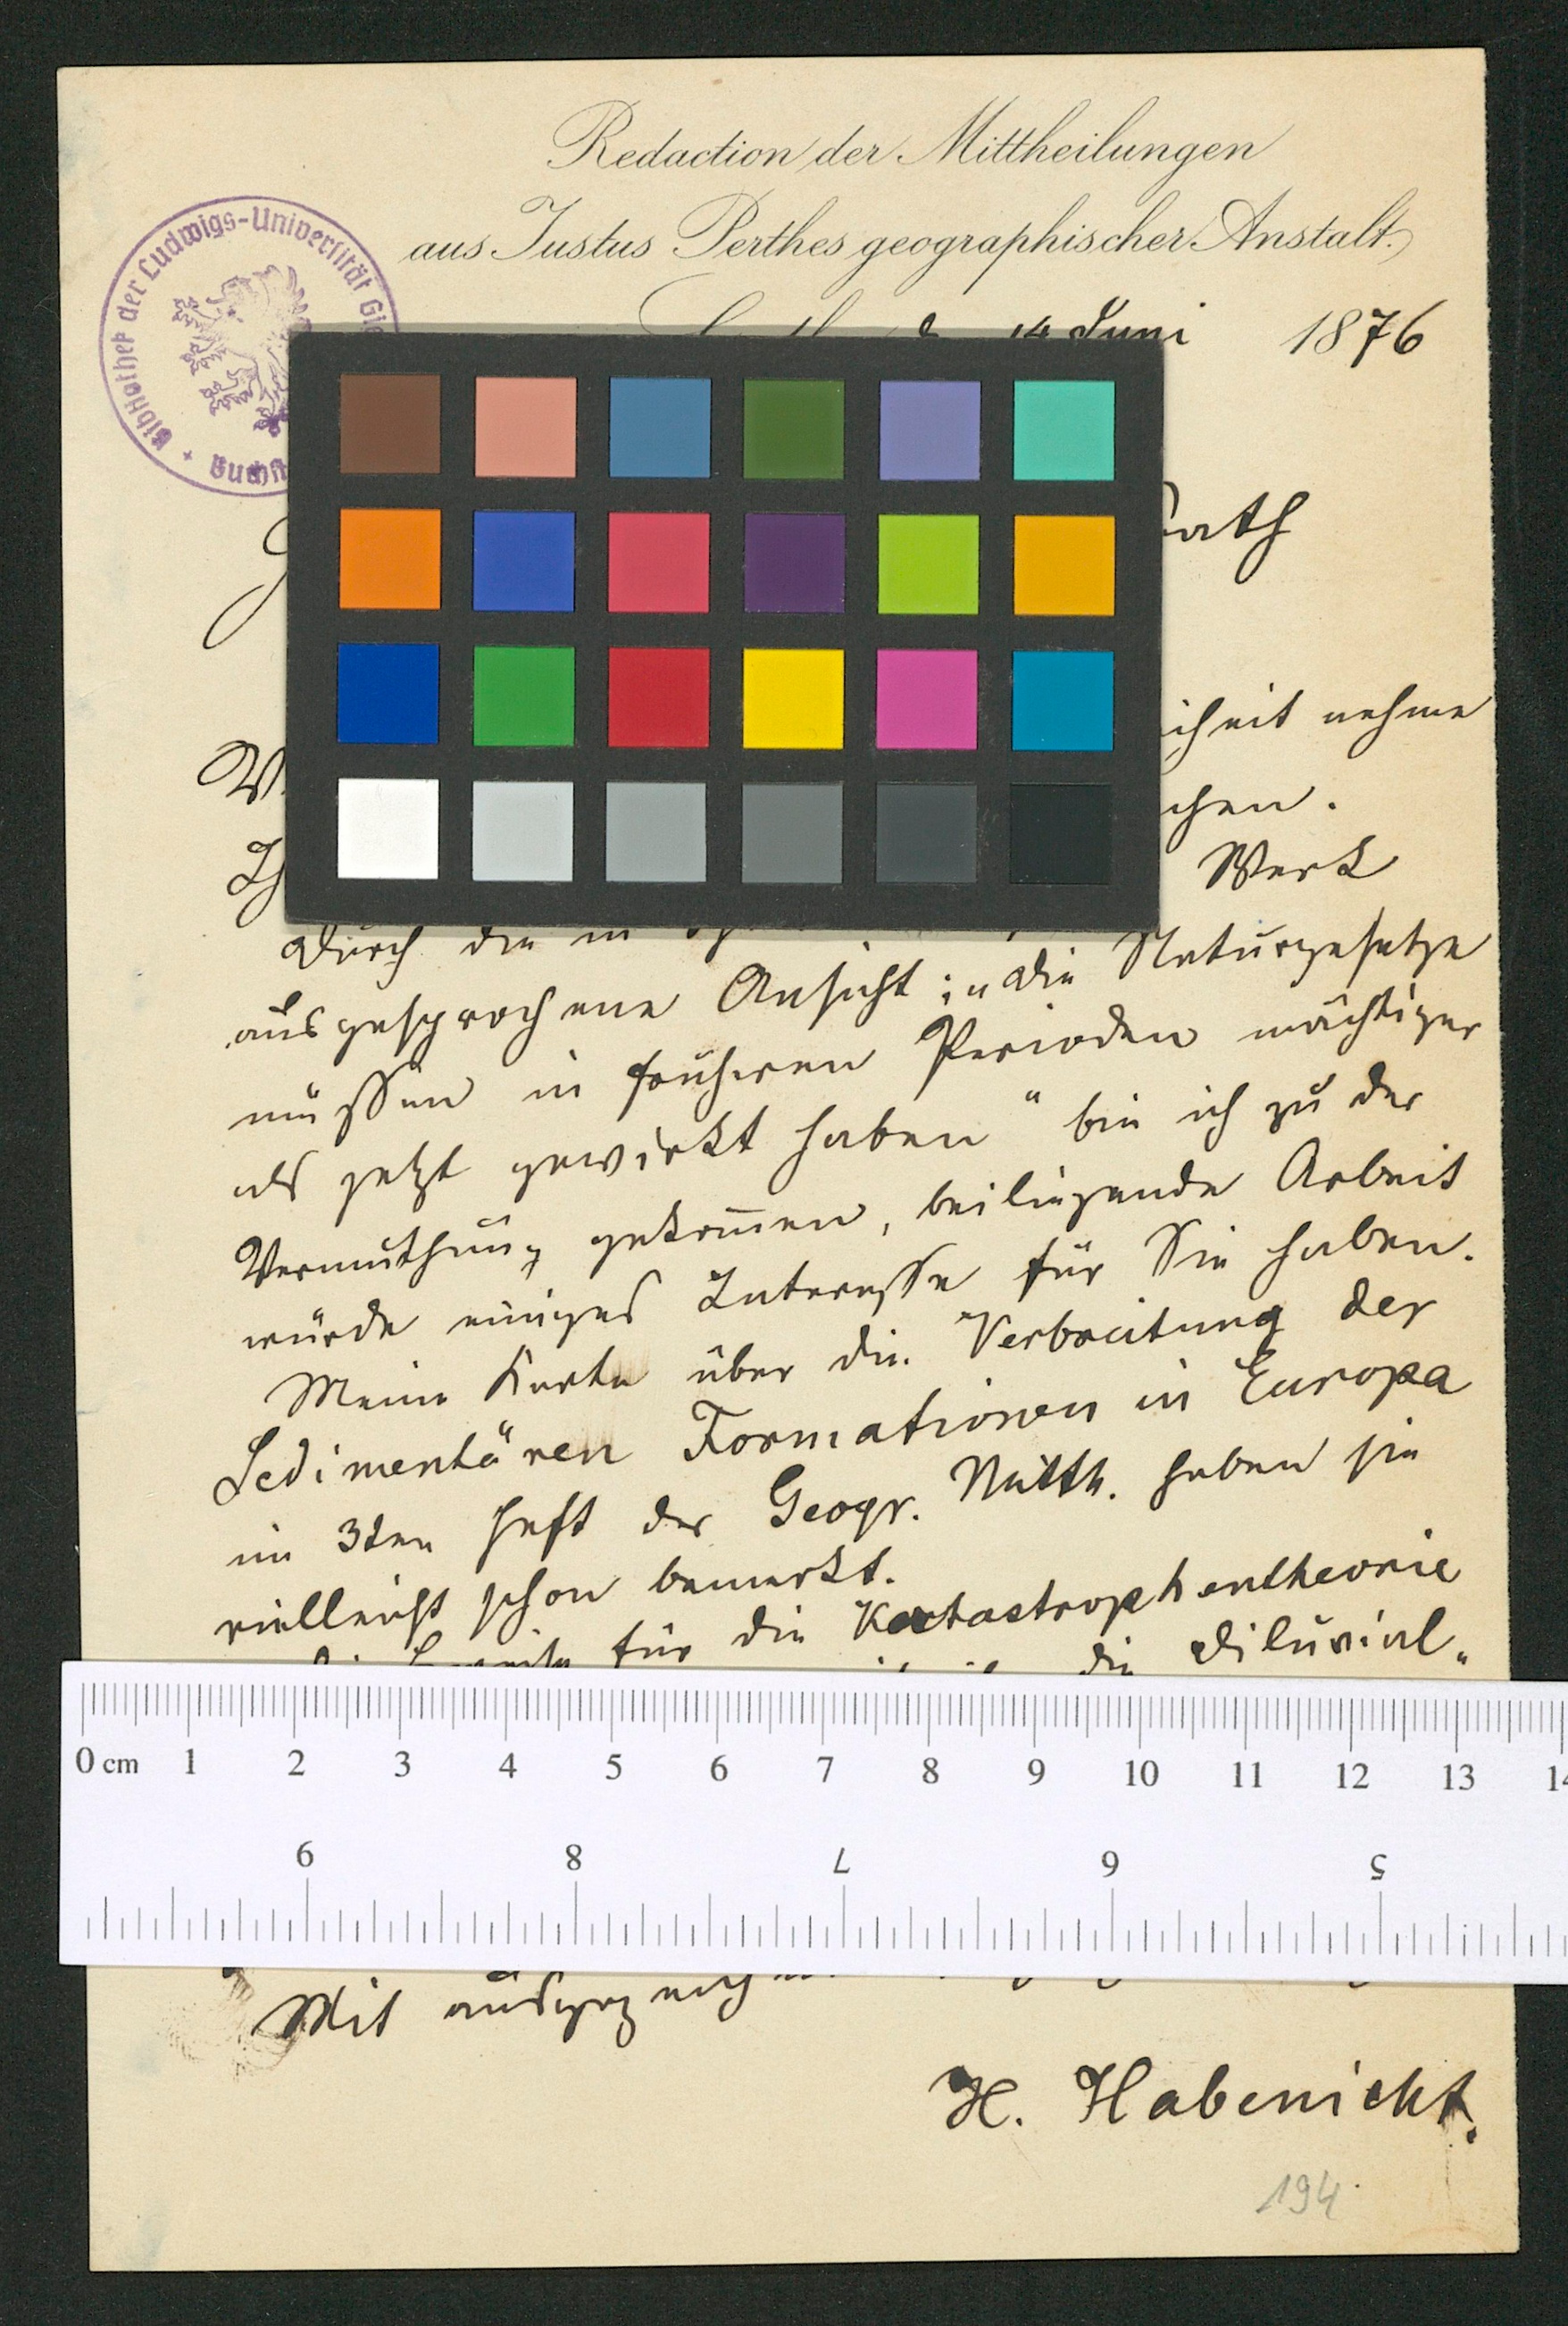 Redaction der Mittheilungen
aus Justus Perthes geographischer Anstalt.
14 Juni 1876
Bibliothek der Ludwigs-Universität
nehme
Werk
Durch die in
ausgesprochene Ansicht: „die Naturgesetze
müssen in früheren Perioden mächtiger
als jetzt gewirkt haben“ bin ich zu der
Vermuthung gekommen, beiliegende Arbeit
würde einiges Interesse für Sie haben.
Meine Karte über die Verbreitung der
Sedimentären Formationen in Europa
im 3ten Heft der Geogr. Mitth. haben sie
vielleicht schon bemerkt.
für die Katastrophentheorie
die Diluvial-
0 cm 1 2 3 4 5 6 7 8 9 10 11 12 13 14
9 8 7 6 5
Mit
H. Habenicht.
194